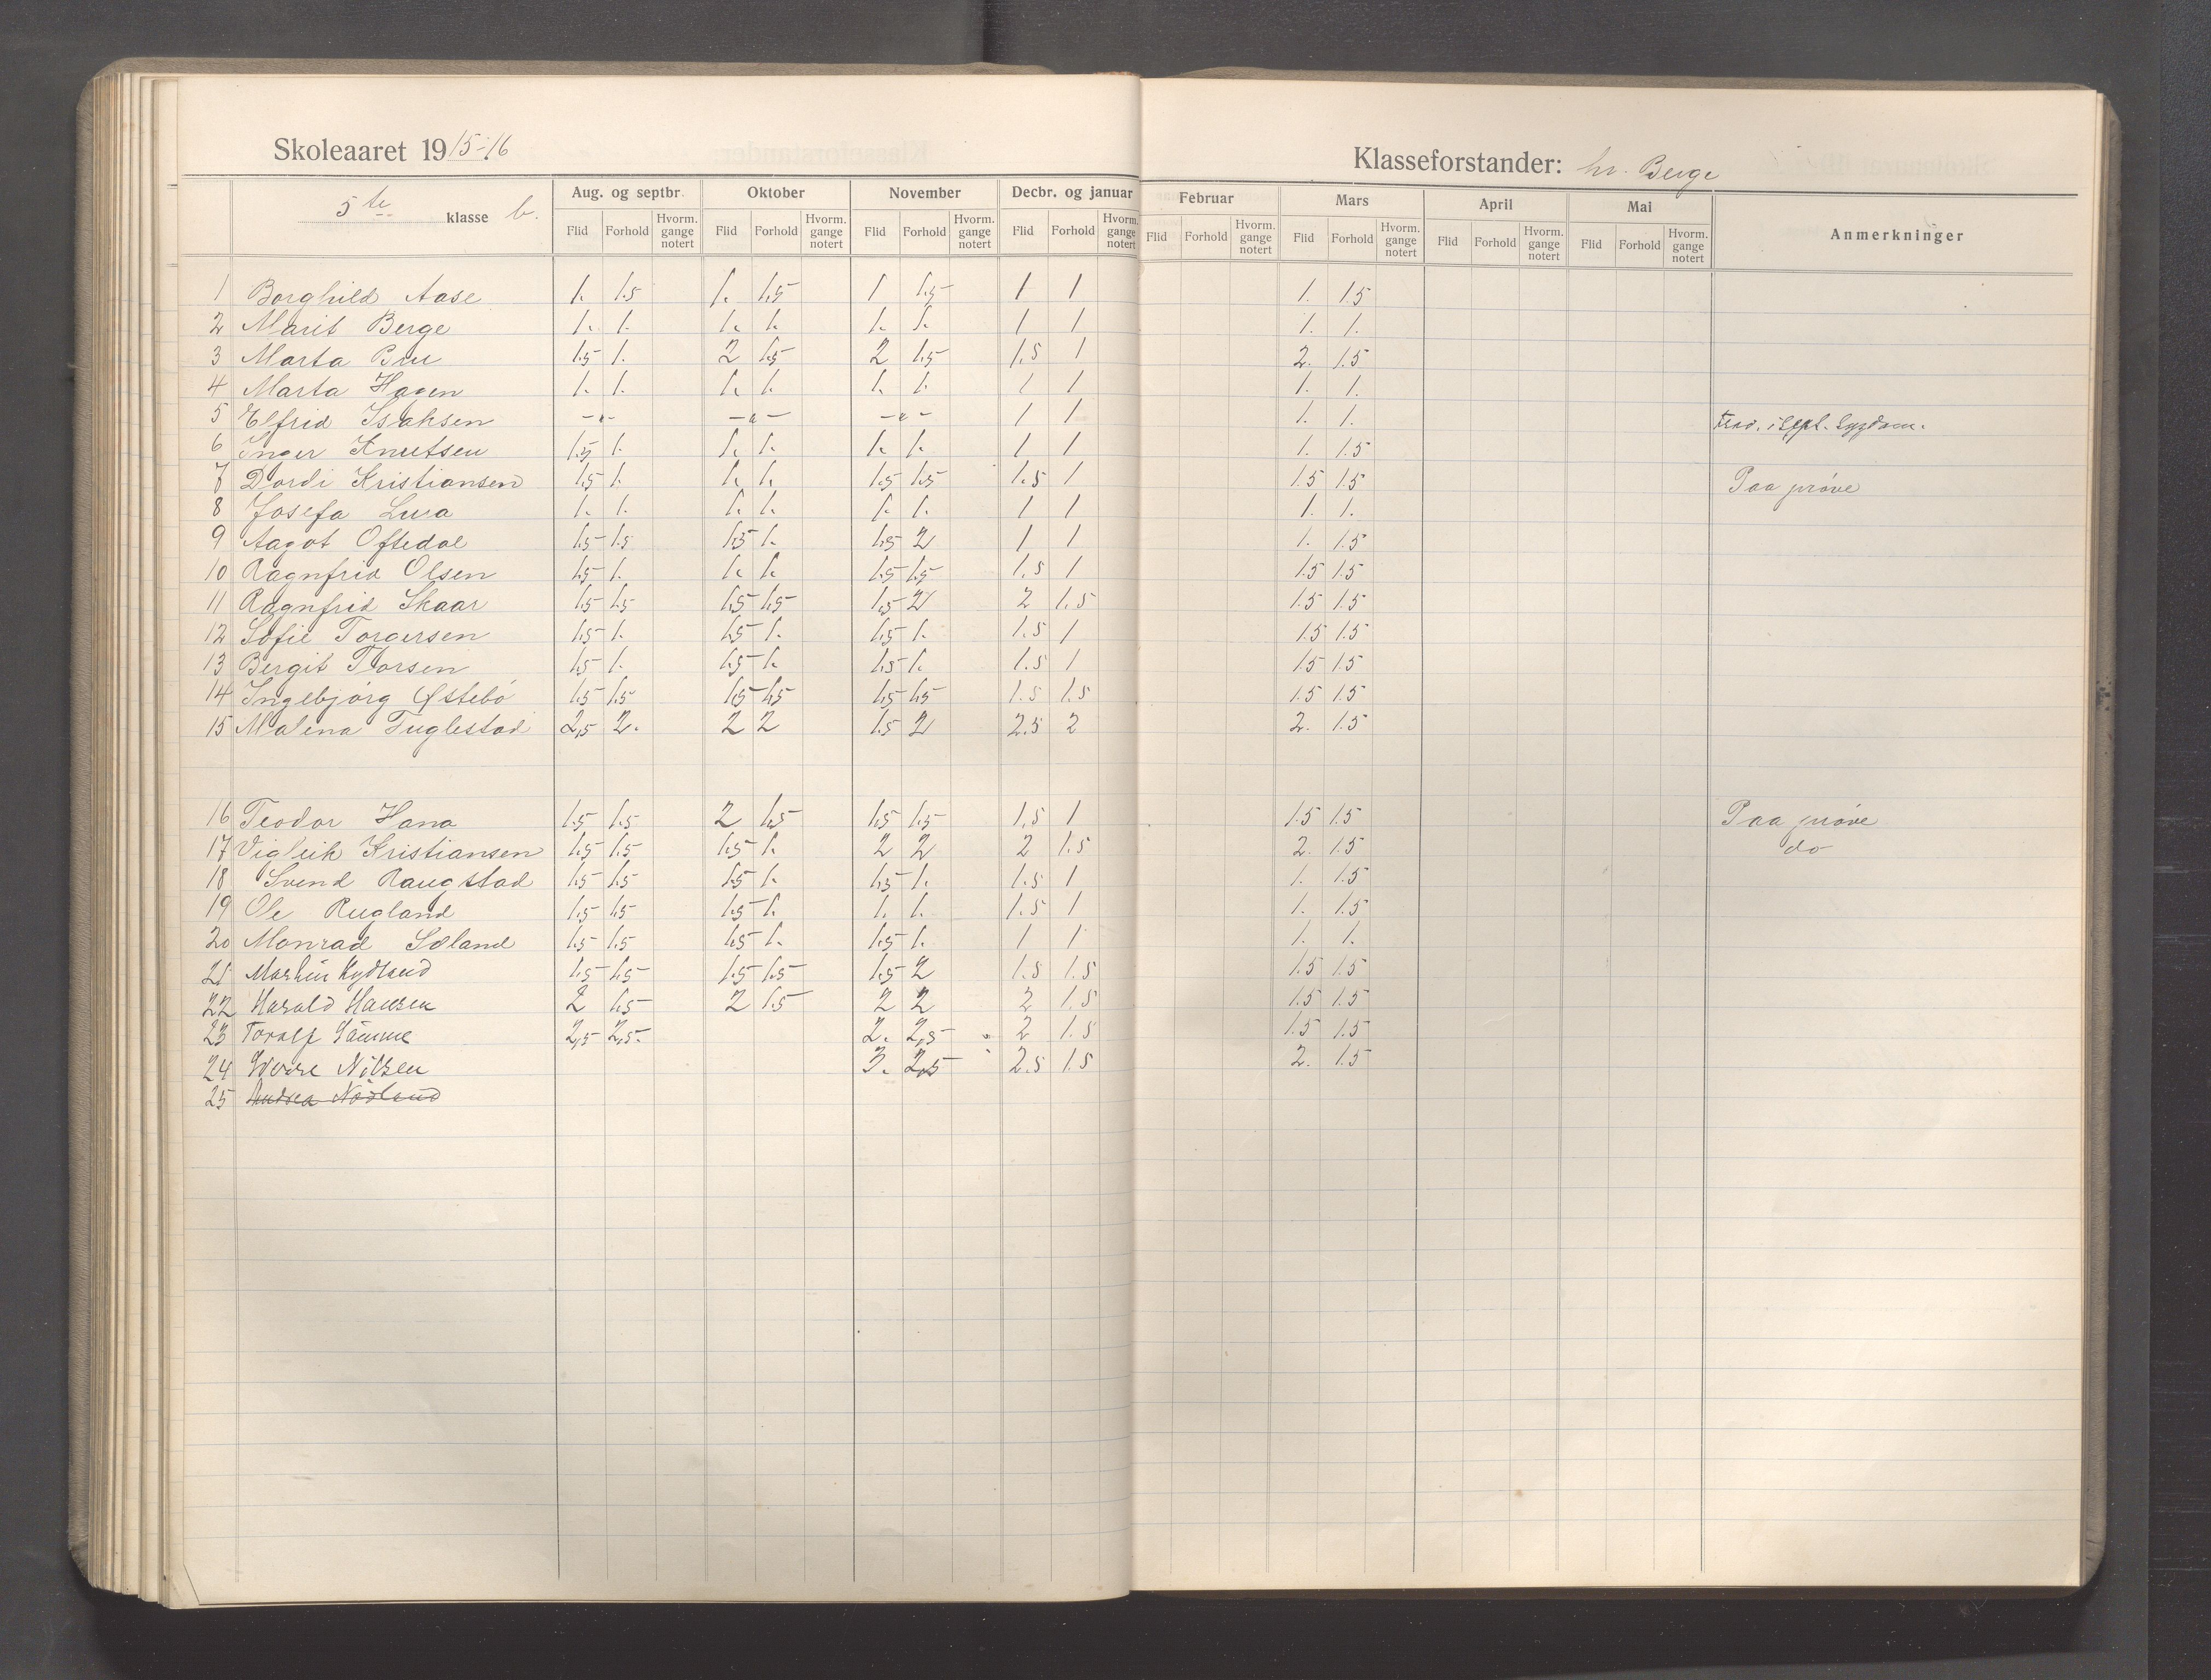 Skoleaaret 1915-16
Klasseforstander: hr. Berge
5te klasse b.
Aug. og septbr. Oktober November Decbr. og januar Februar Mars April Mai Anmerkninger
Flid Forhold Hvorm. gange notert Flid Forhold Hvorm. gange notert Flid Forhold Hvorm. gange notert Flid Forhold Hvorm. gange notert Flid Forhold Hvorm. gange notert Flid Forhold Hvorm. gange notert Flid Forhold Hvorm. gange notert Flid Forhold Hvorm. gange notert
1 Borghild Aase 1. 1.5 1. 1.5 1 1.5 1 1 1. 1.5
2 Marit Berge 1. 1. 1. 1. 1. 1. 1 1 1. 1.
3 Marta Bru 1.5 1. 2 1.5 2 1.5 1.5 1 2. 1.5
4 Marta Hagen 1. 1. 1. 1. 1. 1. 1 1 1. 1.
5 Elfrid Isaksen -"- -"- -"- 1 1 1. 1. frav. i sept. sygdom.
6 Inger Knutsen 1.5 1. 1. 1. 1. 1. 1 1 1. 1.5
7 Dordi Kristiansen 1.5 1. 1. 1. 1.5 1.5 1.5 1 1.5 1.5 Paa prøve
8 Josefa Lura 1. 1. 1. 1. 1. 1. 1 1 1. 1.
9 Aagot Oftedal 1.5 1.5 1.5 1. 1.5 2 1 1 1. 1.5
10 Ragnfrid Olsen 1.5 1. 1. 1. 1.5 1.5 1.5 1 1.5 1.5
11 Ragnfrid Skaar 1.5 1.5 1.5 1.5 1.5 2 2 1.5 1.5 1.5
12 Sofie Torgersen 1.5 1. 1.5 1. 1.5 1. 1.5 1 1.5 1.5
13 Bergit Torsen 1.5 1. 1.5 1. 1.5 1. 1.5 1 1.5 1.5
14 Ingebjørg Østebø 1.5 1.5 1.5 1.5 1.5 1.5 1.5 1.5 1.5 1.5
15 Malena Fuglestad 2,5 2. 2 2 1.5 2 2.5 2 2. 1.5
16 Teodor Hana 1.5 1.5 2 1.5 1.5 1.5 1.5 1 1.5 1.5 Paa prøve
17 Vigleik Kristiansen 1.5 1.5 1.5 1. 2 2 2 1.5 2. 1.5 do
18 Svend Raugstad 1.5 1.5 1.5 1. 1.5 1. 1.5 1 1. 1.5
19 Ole Rugland 1.5 1.5 1.5 1. 1. 1. 1.5 1 1. 1.5
20 Monrad Soland 1.5 1.5 1.5 1. 1.5 1. 1 1 1. 1.
21 Martin Kydland 1.5 1.5 1.5 1.5 1.5 2 1.5 1.5 1.5 1.5
22 Harald Hansen 2 1.5 2 1.5 2 2 2 1.5 1.5 1.5
23 Toralf Sømme 2,5 2,5. 2. 2,5 2 1.5 1.5 1.5
24 Sverre Nilsen 3. 2,5 2.5 1.5 2. 1.5
25 Andrea